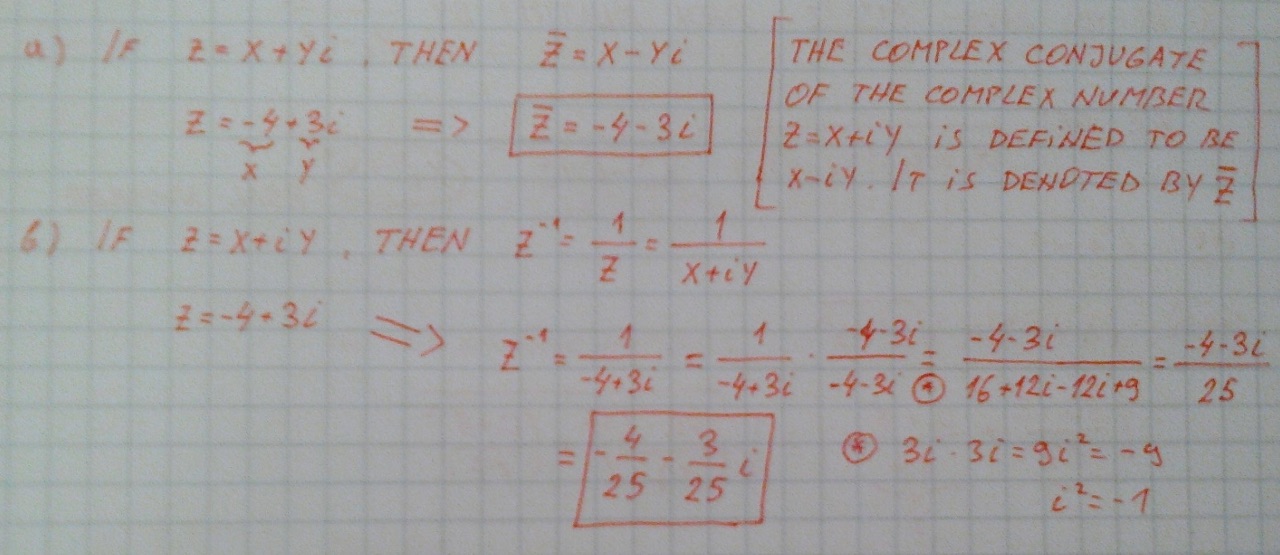 a) IF Z = X + Yi , THEN Z̅ = X - Yi
Z = -4 + 3i => Z̅ = -4 - 3i
X Y
[THE COMPLEX CONJUGATE
OF THE COMPLEX NUMBER
Z = X + iY IS DEFINED TO BE
X - iY. IT IS DENOTED BY Z̅]
b) IF Z = X + iY , THEN Z⁻¹ = 1/Z = 1/(X + iY)
Z = -4 + 3i => Z⁻¹ = 1/(-4+3i) = 1/(-4+3i) · (-4-3i)/(-4-3i) =(*) (-4-3i)/(16+12i-12i+9) = (-4-3i)/25
= -4/25 - 3/25 i
(*) 3i · 3i = 9i² = -9
i² = -1